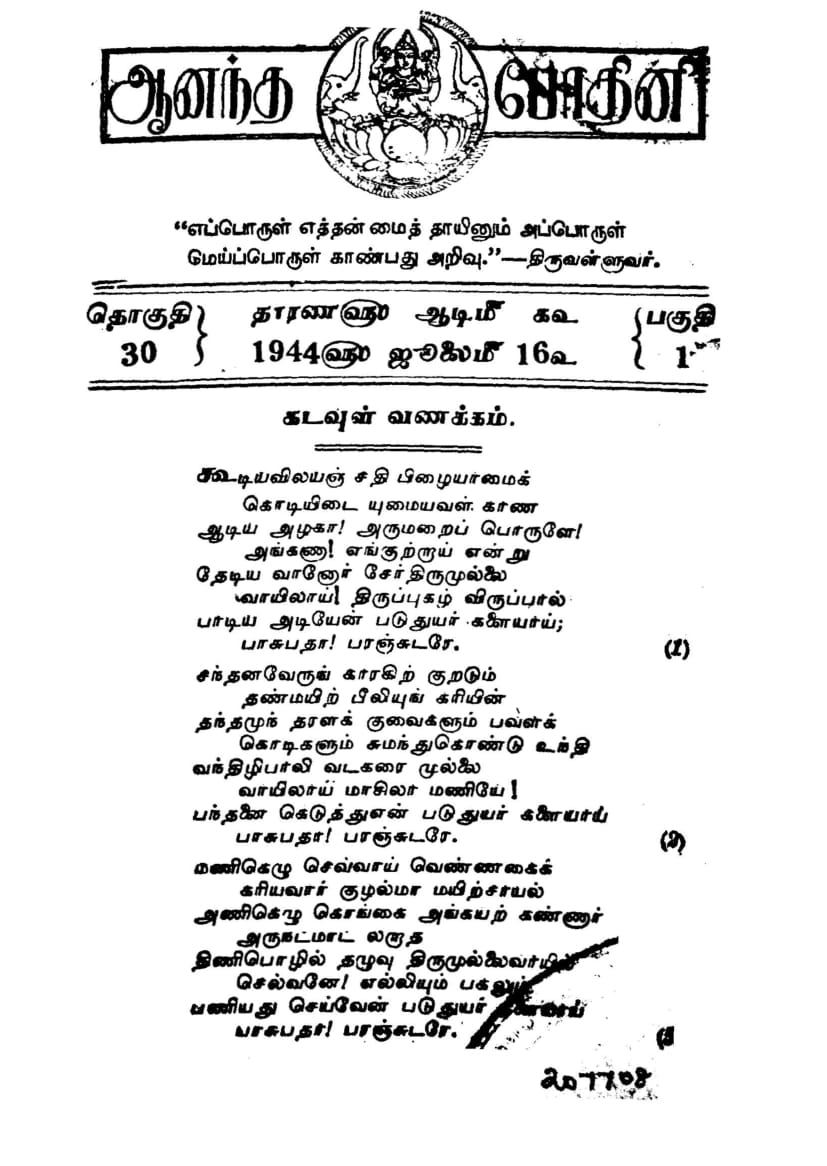 ஆனந்த போதினி
“எப்பொருள் எத்தன்மைத் தாயினும் அப்பொருள்
மேய்ப்பொருள் காண்பது அறிவு.”—திருவள்ளுவர்.
தொகுதி } தாரண௵ ஆடி௴ ௧௳ { பகுதி
30 } 1944௵ ஜூலை௴ 16௳ { 1
கடவுள் வணக்கம்.
கூடியவிலயஞ் சதி பிழையாமைக்
கொடியிடை யுமையவள் காண
ஆடிய அழகா! அருமறைப் பொருளே!
அங்கணா! எங்குற்றாய் என்று
தேடிய வானோர் சேர்திருமுல்லை
வாயிலாய்! திருப்புகழ் விருப்பால்
பாடிய அடியேன் படுதுயர் களையாய்;
பாசுபதா! பரஞ்சுடரே. (1)
சந்தனவேருங் காரகிற் குறடும்
தண்மயிற் பீலியுங் கரியின்
தந்தமுந் தரளக் குவைகளும் பவளக்
கொடிகளும் சுமந்துகொண்டு உந்தி
வந்திழிபாலி வடகரை முல்லை
வாயிலாய் மாசிலா மணியே!
பந்தனை கெடுத்துஎன் படுதுயர் களையாய்
பாசுபதா! பரஞ்சுடரே. (2)
மணிகெழு செவ்வாய் வெண்ணகைக்
கரியவார் குழல்மா மயிற்சாயல்
அணிகெழு கொங்கை அங்கயற் கண்ணார்
அருநடமாட் லறாத
திணிபொழில் தழுவு திருமுல்லைவாயில்
செல்வனே! எல்லியும் பகலும்
பணியது செய்வேன் படுதுயர் களையாய்
பாசுபதா! பரஞ்சுடரே. (3
207708